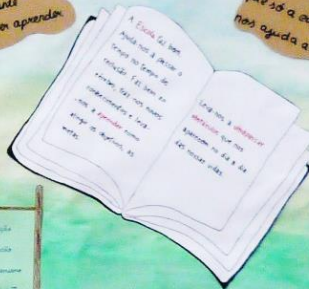 er aprender
A Escola faz bem.
Ajuda-nos a passar o
tempo no tempo de
reclusão. Faz bem ao
cérebro, traz-nos novos
conhecimentos e leva-
-nos a aprender como
atingir os objetivos, as
metas.
Leva-nos a ultrapassar
obstáculos que nos
aparecem no dia a dia
das nossas vidas.
só a
nos ajuda a